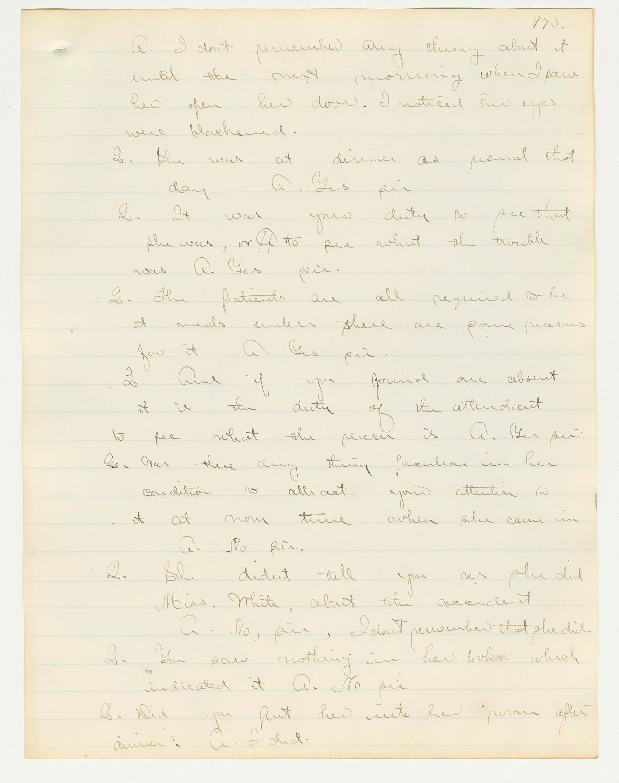 973.
A. I don't remember any thing about it
until the next morning when I saw
her open her door. I noticed her eyes
were blackened.
Q. She was at dinner as usual that
day A. Yes sir
Q. It was your duty to see that
she was, or to see what the trouble
was A. Yes sir.
Q. The patients are all required to be
at meals unless there are some reasons
for it A. Yes sir.
Q. And if you found one absent
it is the duty of the attendant
to see what the reason is A. Yes sir
Q. Was there any thing peculiar in her
condition to attract your attention to
it at noon time when she came in
A. No sir.
Q. She didn't tell you as she did
Miss. White, about the accident
A. No, sir, I don't remember that she did.
Q. You saw nothing in her looks which
indicated it A. No sir
Q. Did you put her into her room after
dinner? A. I did.